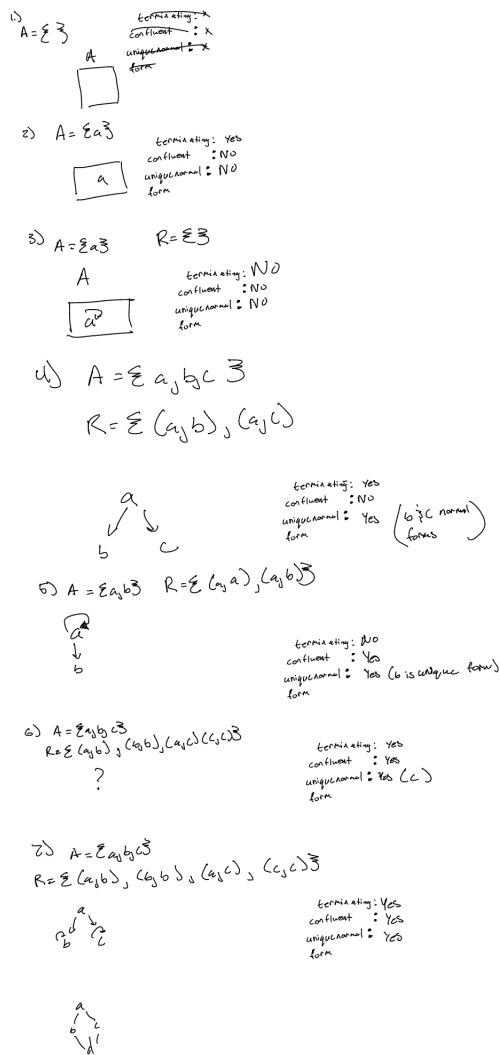 1.)
A = { }
A
terminating : x
confluent : x
unique normal : x
form
2) A = {a}
a
terminating: Yes
confluent : No
unique normal : No
form
3) A = {a} R = { }
A
a
terminating: No
confluent : No
unique normal : No
form
4) A = { a, b, c }
R = { (a,b), (a,c)
a
b c
terminating: Yes
confluent : No
unique normal : Yes (b & c normal
form forms)
5) A = {a,b} R = { (a,a), (a,b)}
a
b
terminating: No
confluent : Yes
unique normal : Yes (b is unique form)
form
6) A = {a,b,c}
R = { (a,b), (b,b), (a,c) (c,c)}
?
terminating: Yes
confluent : Yes
unique normal : Yes (c)
form
7) A = {a,b,c}
R = { (a,b), (b,b), (a,c), (c,c)}
a
b c
terminating: Yes
confluent : Yes
unique normal : Yes
form
a
b c
d